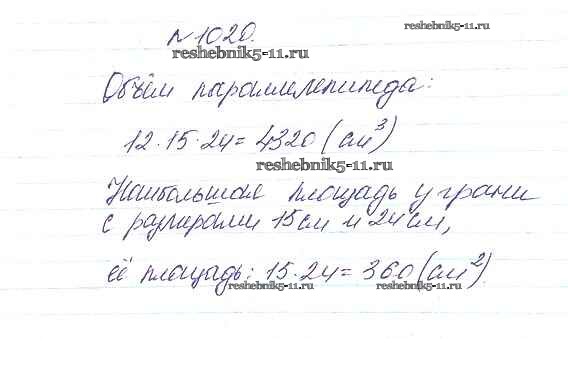 №1020.
reshebnik5-11.ru
reshebnik5-11.ru
Объём параллелепипеда:
12·15·24=4320 (см³)
reshebnik5-11.ru
Наибольшая площадь у грани
с размерами 15см и 24см,
её площадь: 15·24=360 (см²).
reshebnik5-11.ru
reshebnik5-11.ru